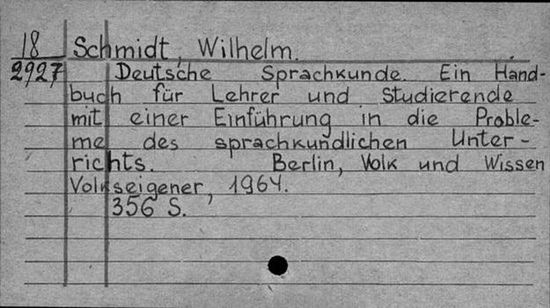 18 Schmidt, Wilhelm.
2927 Deutsche Sprachkunde. Ein Hand-
buch für Lehrer und Studierende
mit einer Einführung in die Proble-
me des sprachkundlichen Unter-
richts. Berlin, Volk und Wissen
Volkseigener, 1964.
356 S.